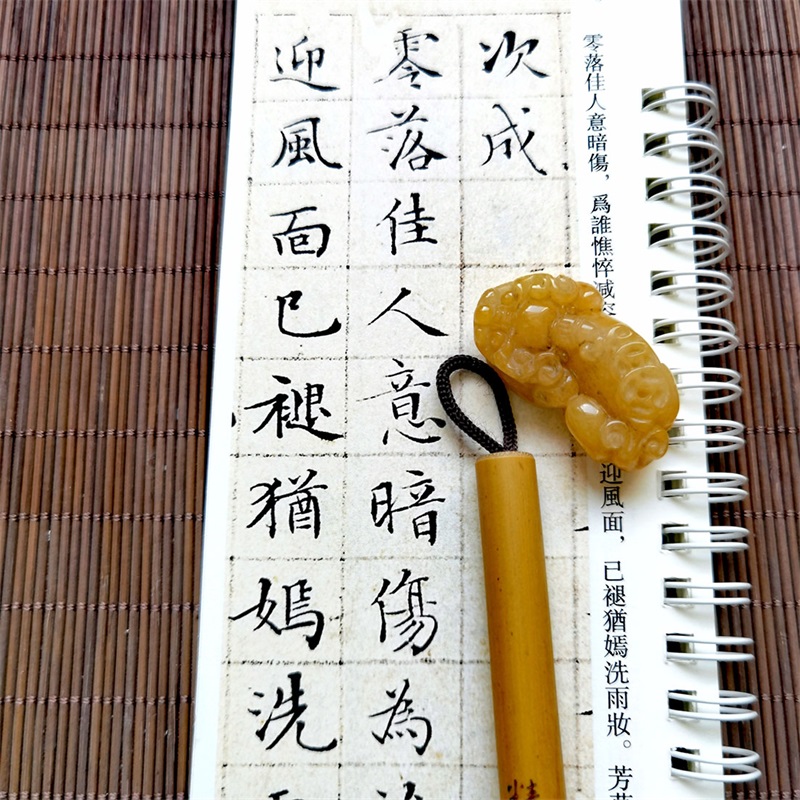 零落佳人意暗傷,爲誰憔悴减
迎風面,已褪猶嫣洗雨妝。芳
次成
零落佳人意暗傷為
迎風面已褪猶嫣洗